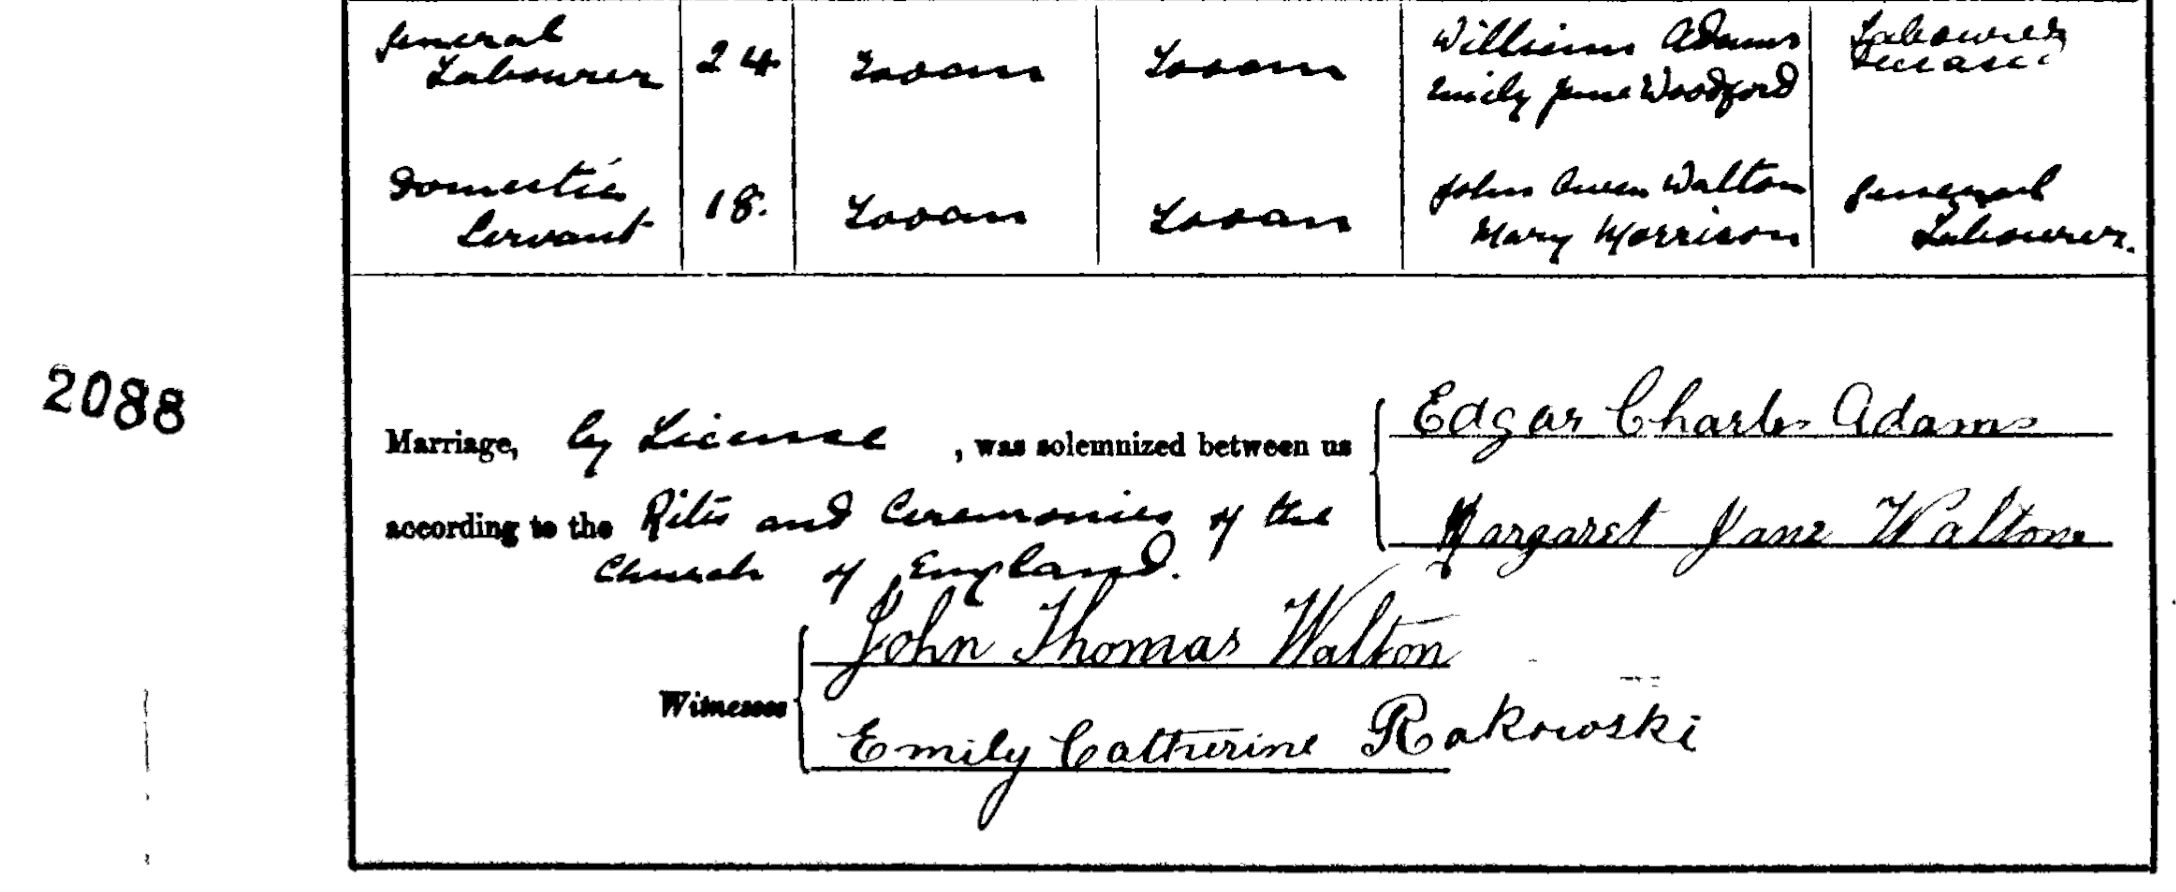 General
Labourer
24
Yooan
Yooan
William Adams
Emily Jane Woodford
Labourer
Domestic
Servant
18.
Yooan
Yooan
John Owen Walton
Mary Morrison
General
Labourer.
2088
Marriage, by License, was solemnized between us
Edgar Charles Adams
according to the Rites and Ceremonies of the
Margaret Jane Walton
Church of England.
John Thomas Walton
Witnesses
Emily Catherine Rakowski